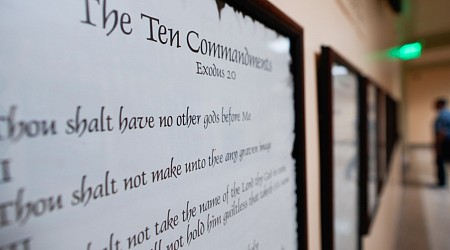 The Ten Commandments
Exodus 20
Thou shalt have no other gods before Me
II
Thou shalt not make unto thee any graven image
shalt not take the name of the Lord thy God
will not hold him guiltless that